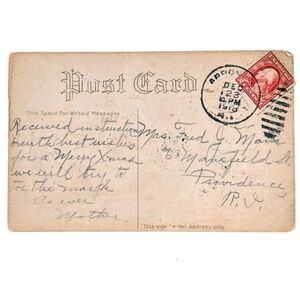 Post Card
This Space for Writing Messages
This side for the Address only
DEC
23
6 PM
1913
R.I.
Received instructions
with best wishes
for a Merry Xmas
we will try to
toe the mark
As ever
Mother
Mrs. Fred J. Main
Mansfield St
Providence
R.I.